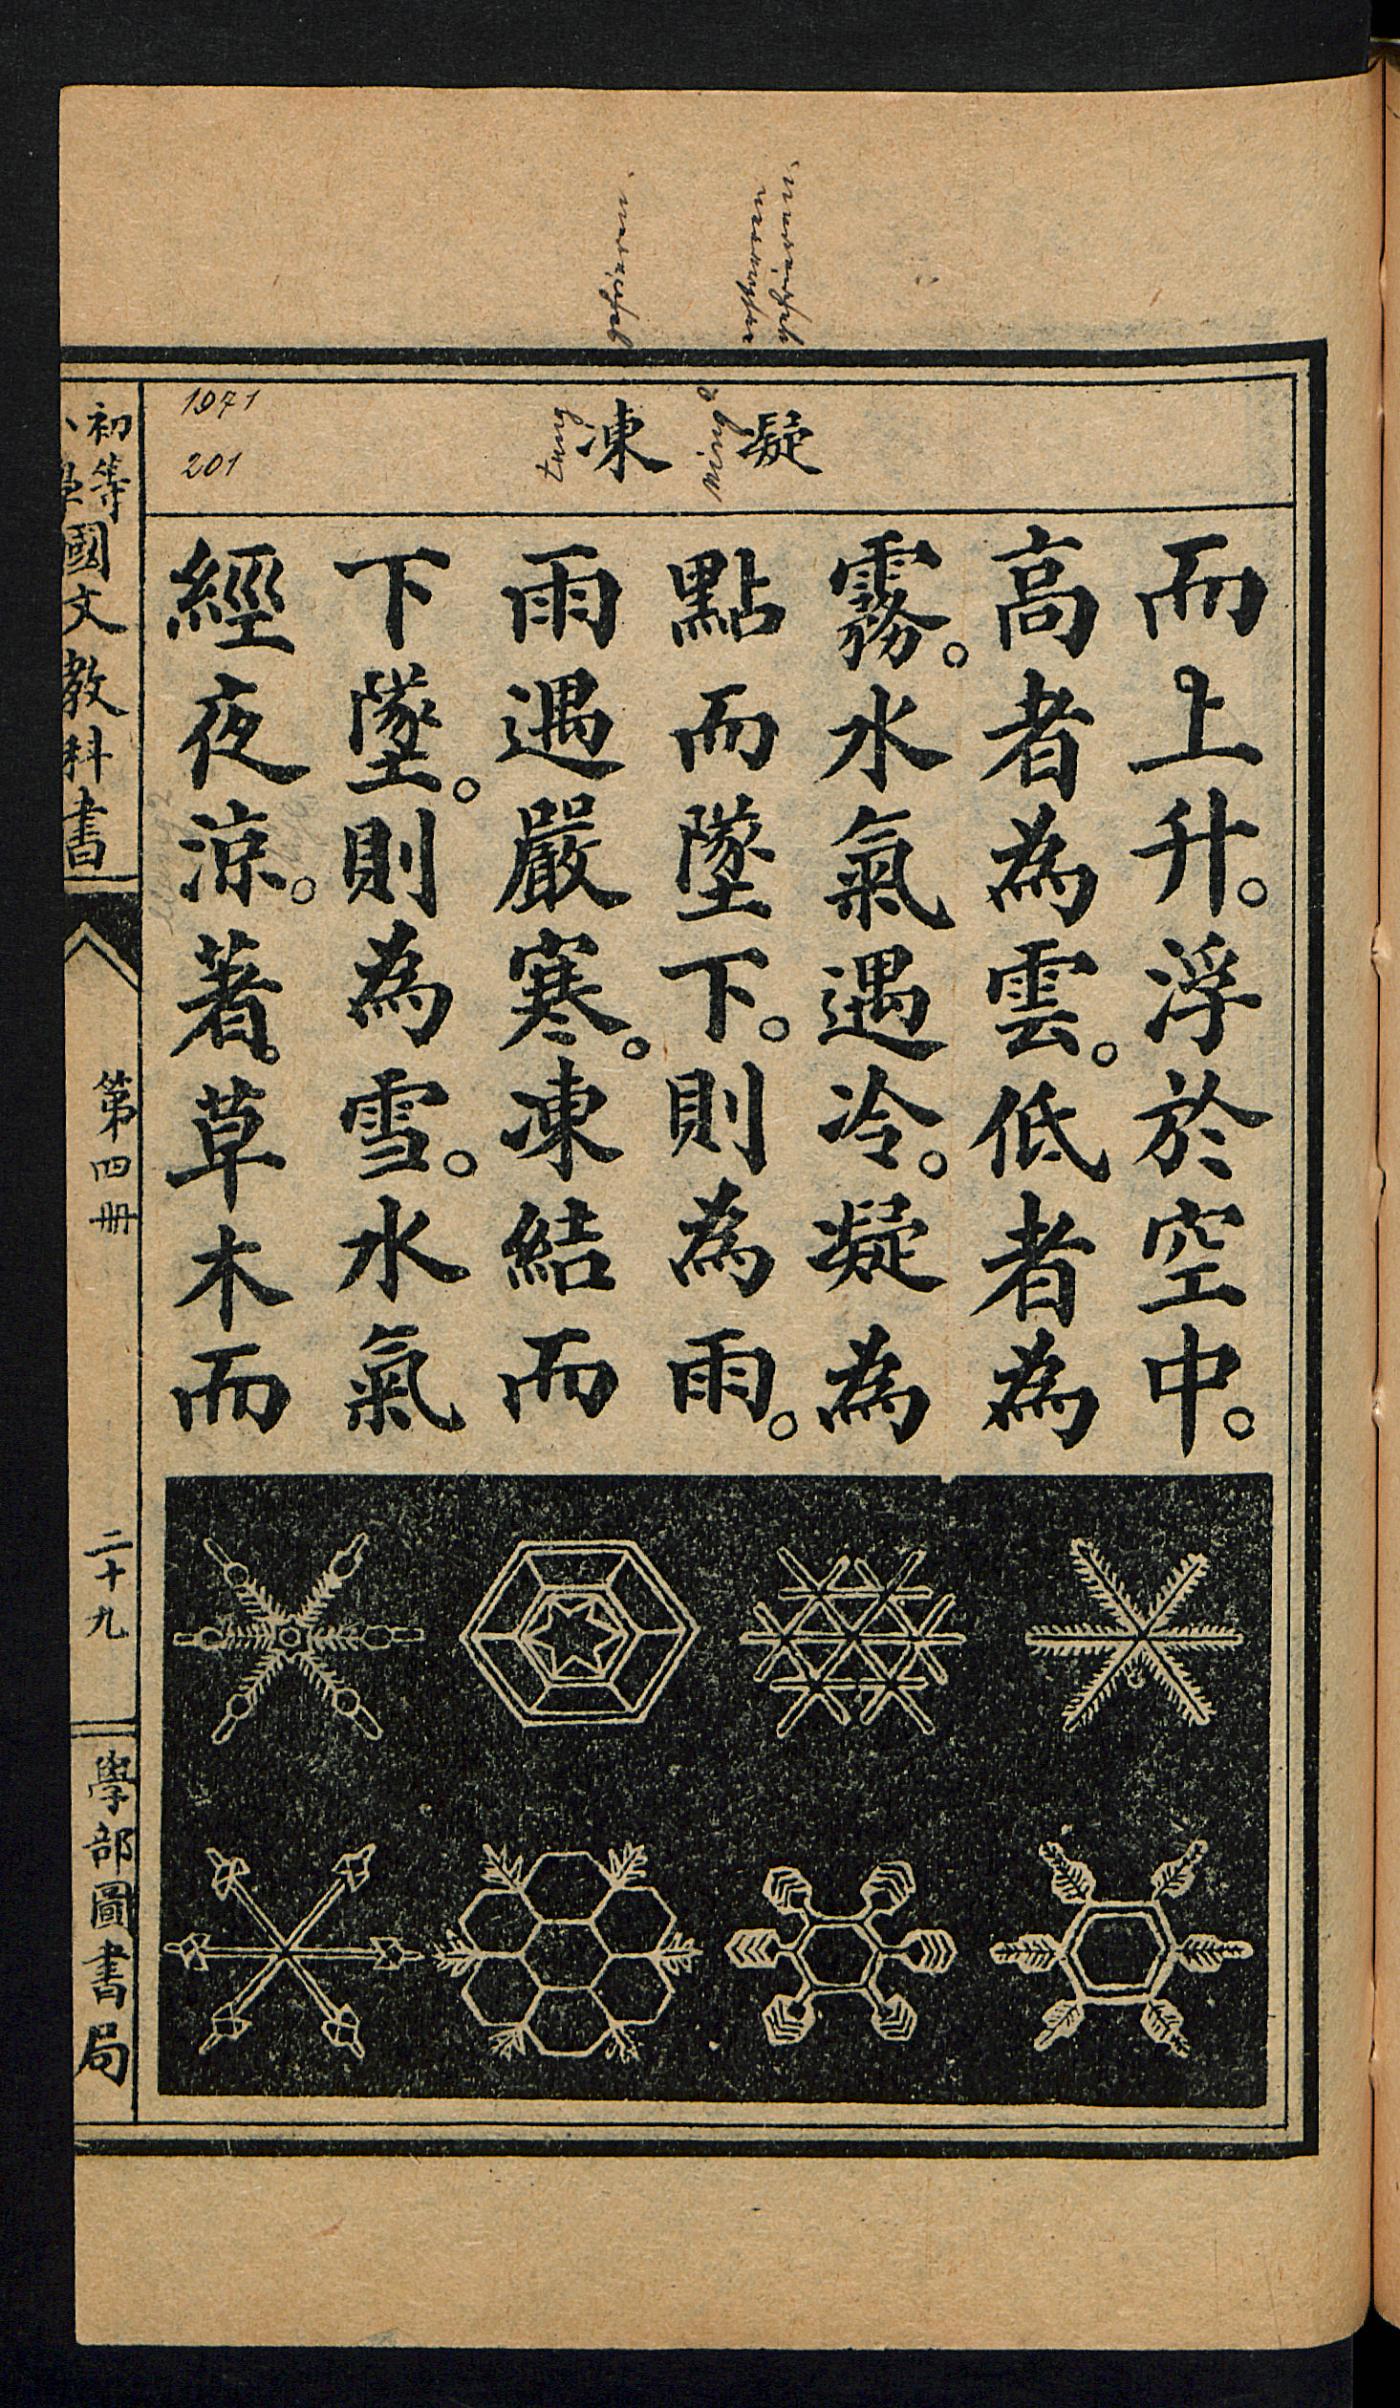 凝 凍
ning
tung
1971
201
而上升。浮於空中。
高者為雲。低者為
霧。水氣遇冷。凝為
點而墜下。則為雨。
雨遇嚴寒。凍結而
下墜。則為雪。水氣
經夜涼。著草木而
初等小學國文教科書
第四冊
二十九
學部圖書局